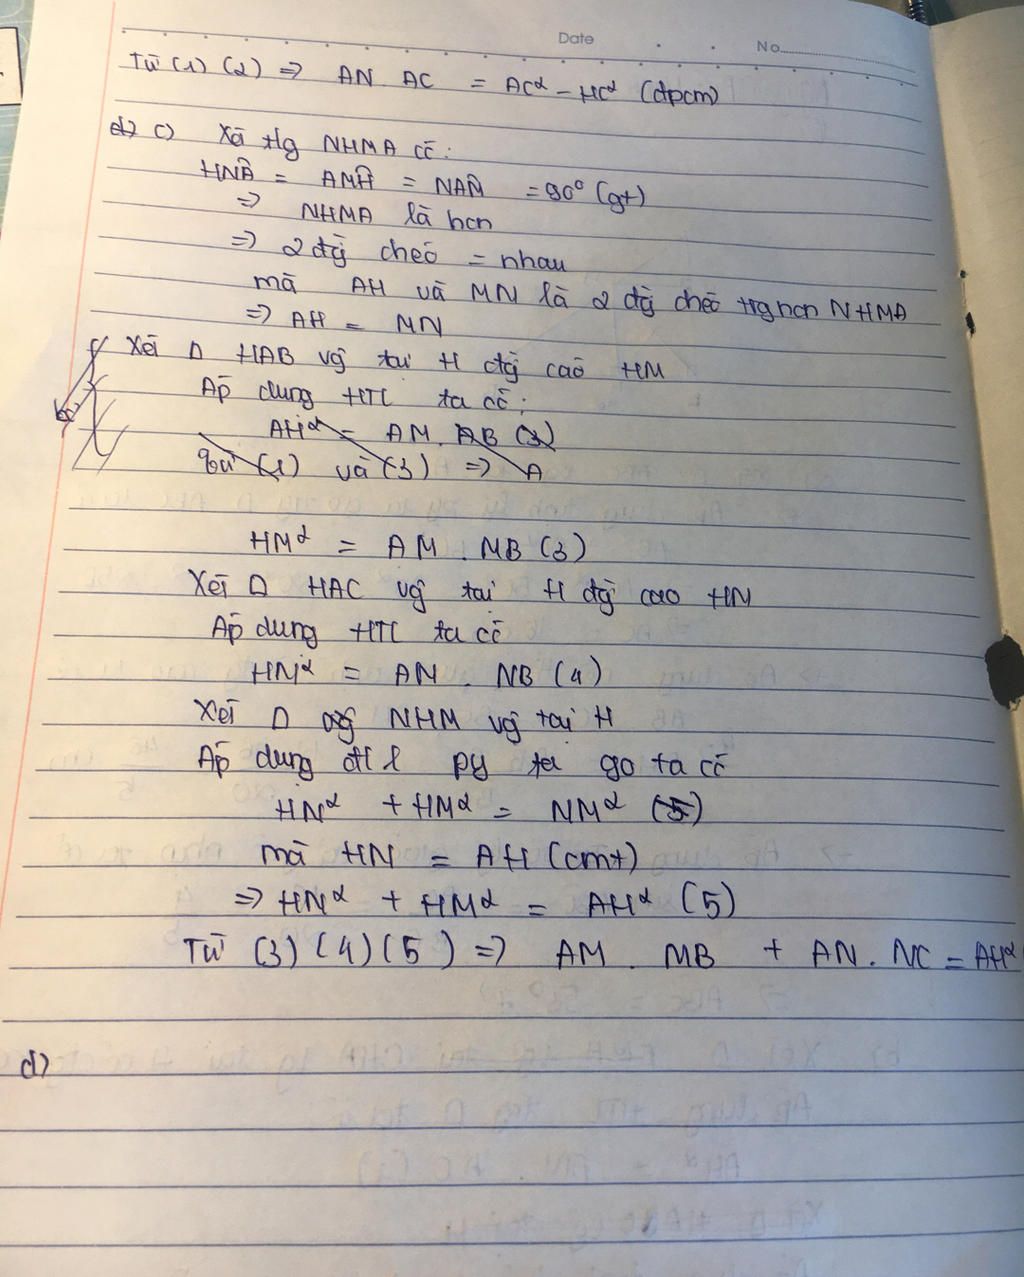 Date No
Từ (1) (2) => AN . AC = AC² - HC² (đpcm)
c) Xét tg NHMA có:
HNA = AMH = NAM = 90° (gt)
=> NHMA là hcn
=> 2 đg chéo = nhau
mà AH và MN là 2 đg chéo trg hcn NHMA
=> AH = MN
Xét Δ HAB vg tại H đg cao HM
Áp dụng HTL ta có:
AH² = AM . AB (3)
Từ (1) và (3) => A
HM² = AM . MB (3)
Xét Δ HAC vg tại H đg cao HN
Áp dụng HTL ta có
HN² = AN . NB (4)
Xét Δ NHM vg tại H
Áp dụng đtl py ta go ta có
HN² + HM² = NM² (5)
mà HN = AH (cmt)
=> HN² + HM² = AH² (5)
Từ (3) (4) (5) => AM . MB + AN . NC = AH²
d)